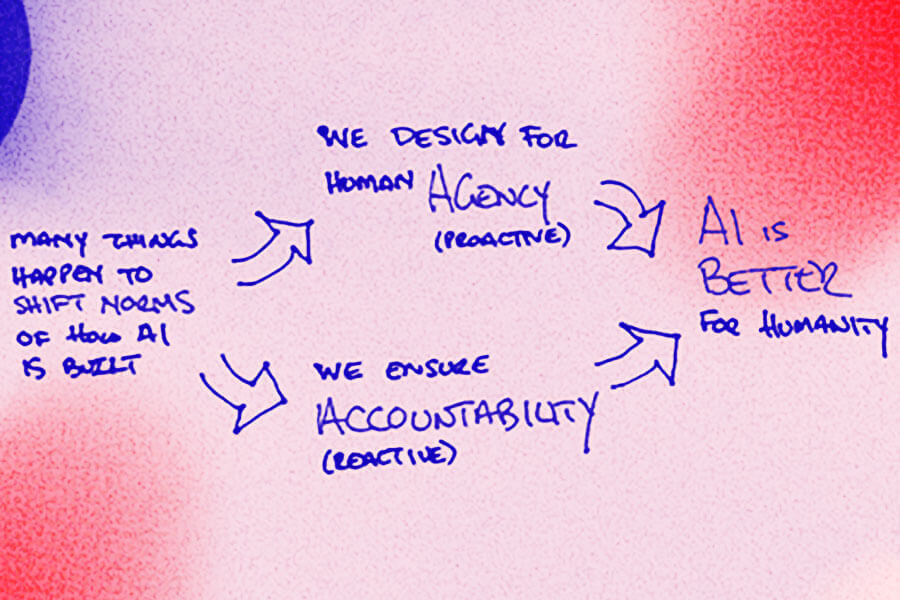 MANY THINGS
HAPPEN TO
SHIFT NORMS
OF HOW AI
IS BUILT
WE DESIGN FOR
HUMAN AGENCY
(PROACTIVE)
WE ENSURE
ACCOUNTABILITY
(REACTIVE)
AI IS
BETTER
FOR HUMANITY